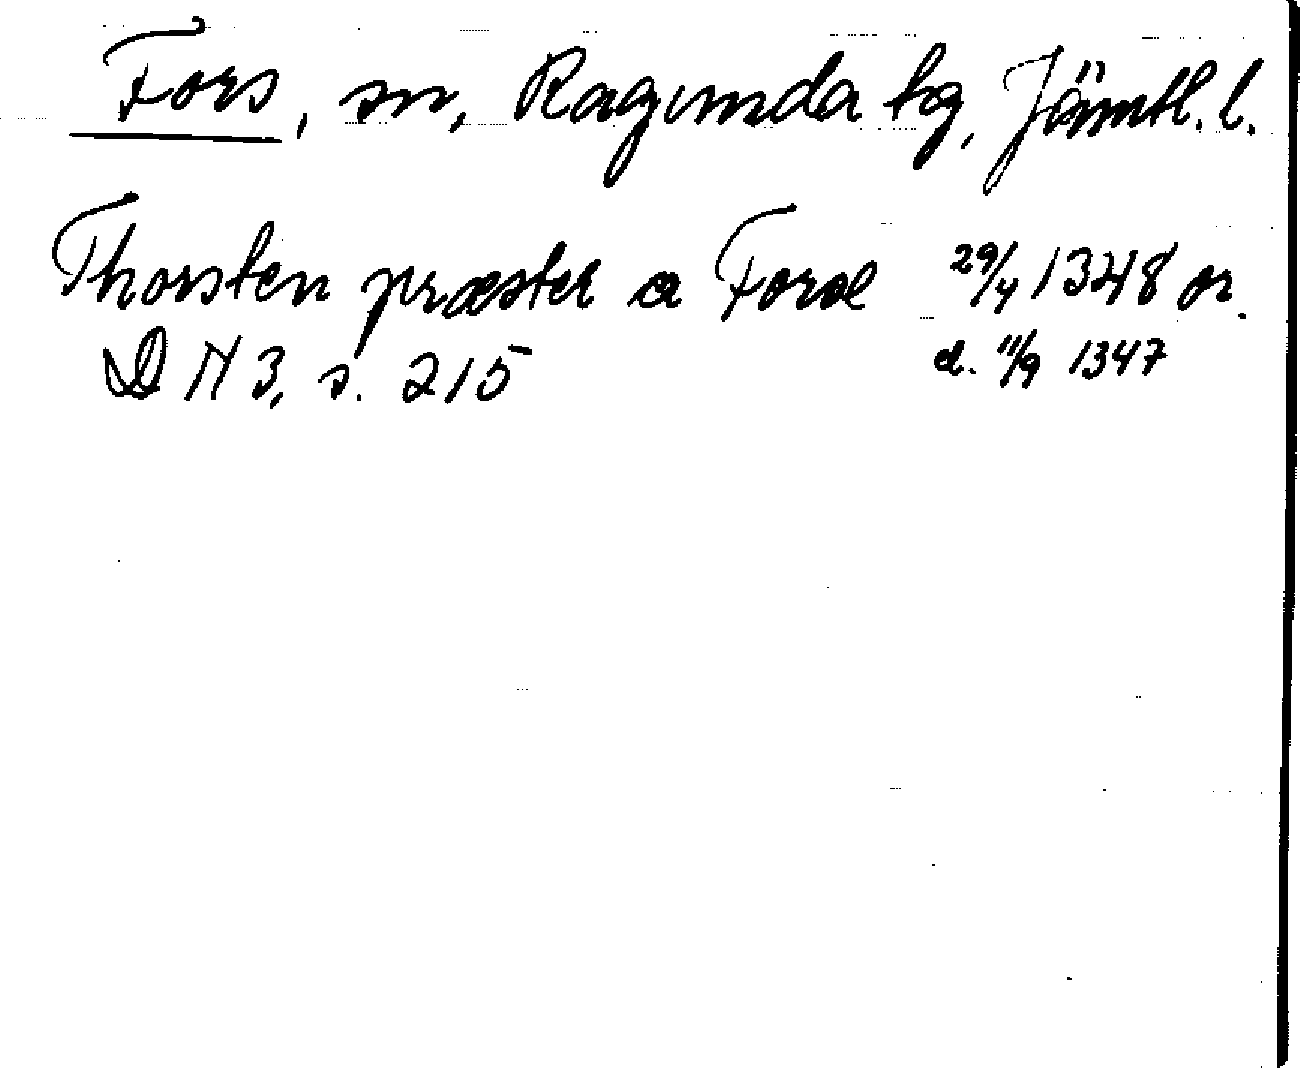 Fors, sn, Ragunda tg, Jämtl. l.
Thorsten præster a Forse 29/4 1348 or.
DN 3, s. 215 d. 11/9 1347